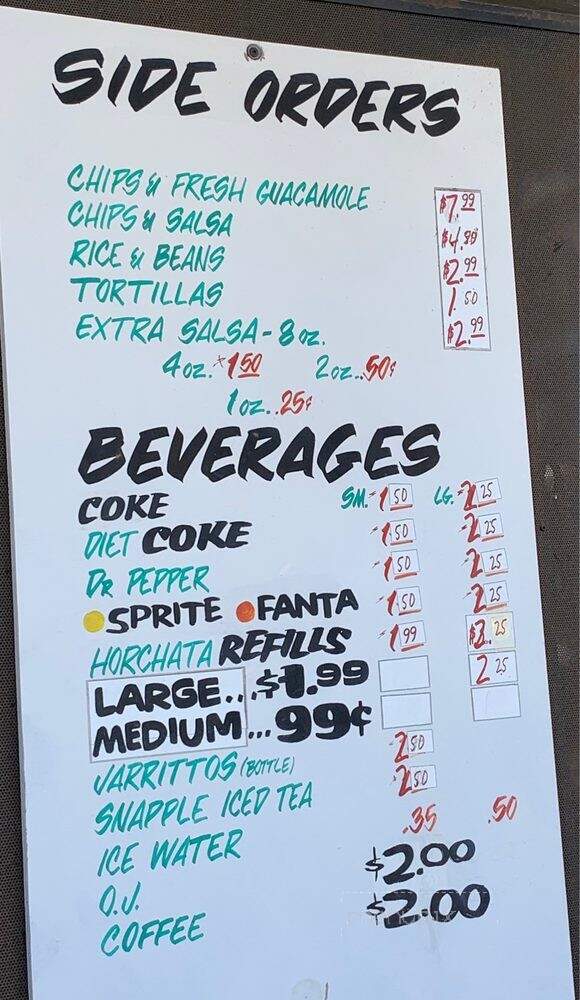 SIDE ORDERS
CHIPS & FRESH GUACAMOLE $7.99
CHIPS & SALSA $4.
RICE & BEANS $2.99
TORTILLAS 1.50
EXTRA SALSA - 8 oz. $2.99
4 oz. 1.50 2 oz..50¢
1 oz..25¢
BEVERAGES
COKE SM.-1.50 LG.-2.25
DIET COKE -1.50 -2.25
DR PEPPER -1.50 -2.25
SPRITE FANTA -1.50 -2.25
HORCHATA REFILLS -1.99 $3.25
LARGE...$1.99 2.25
MEDIUM...99¢
JARRITTOS (BOTTLE) 2.50
SNAPPLE ICED TEA 2.50
ICE WATER .35 .50
O.J. $2.00
COFFEE $2.00